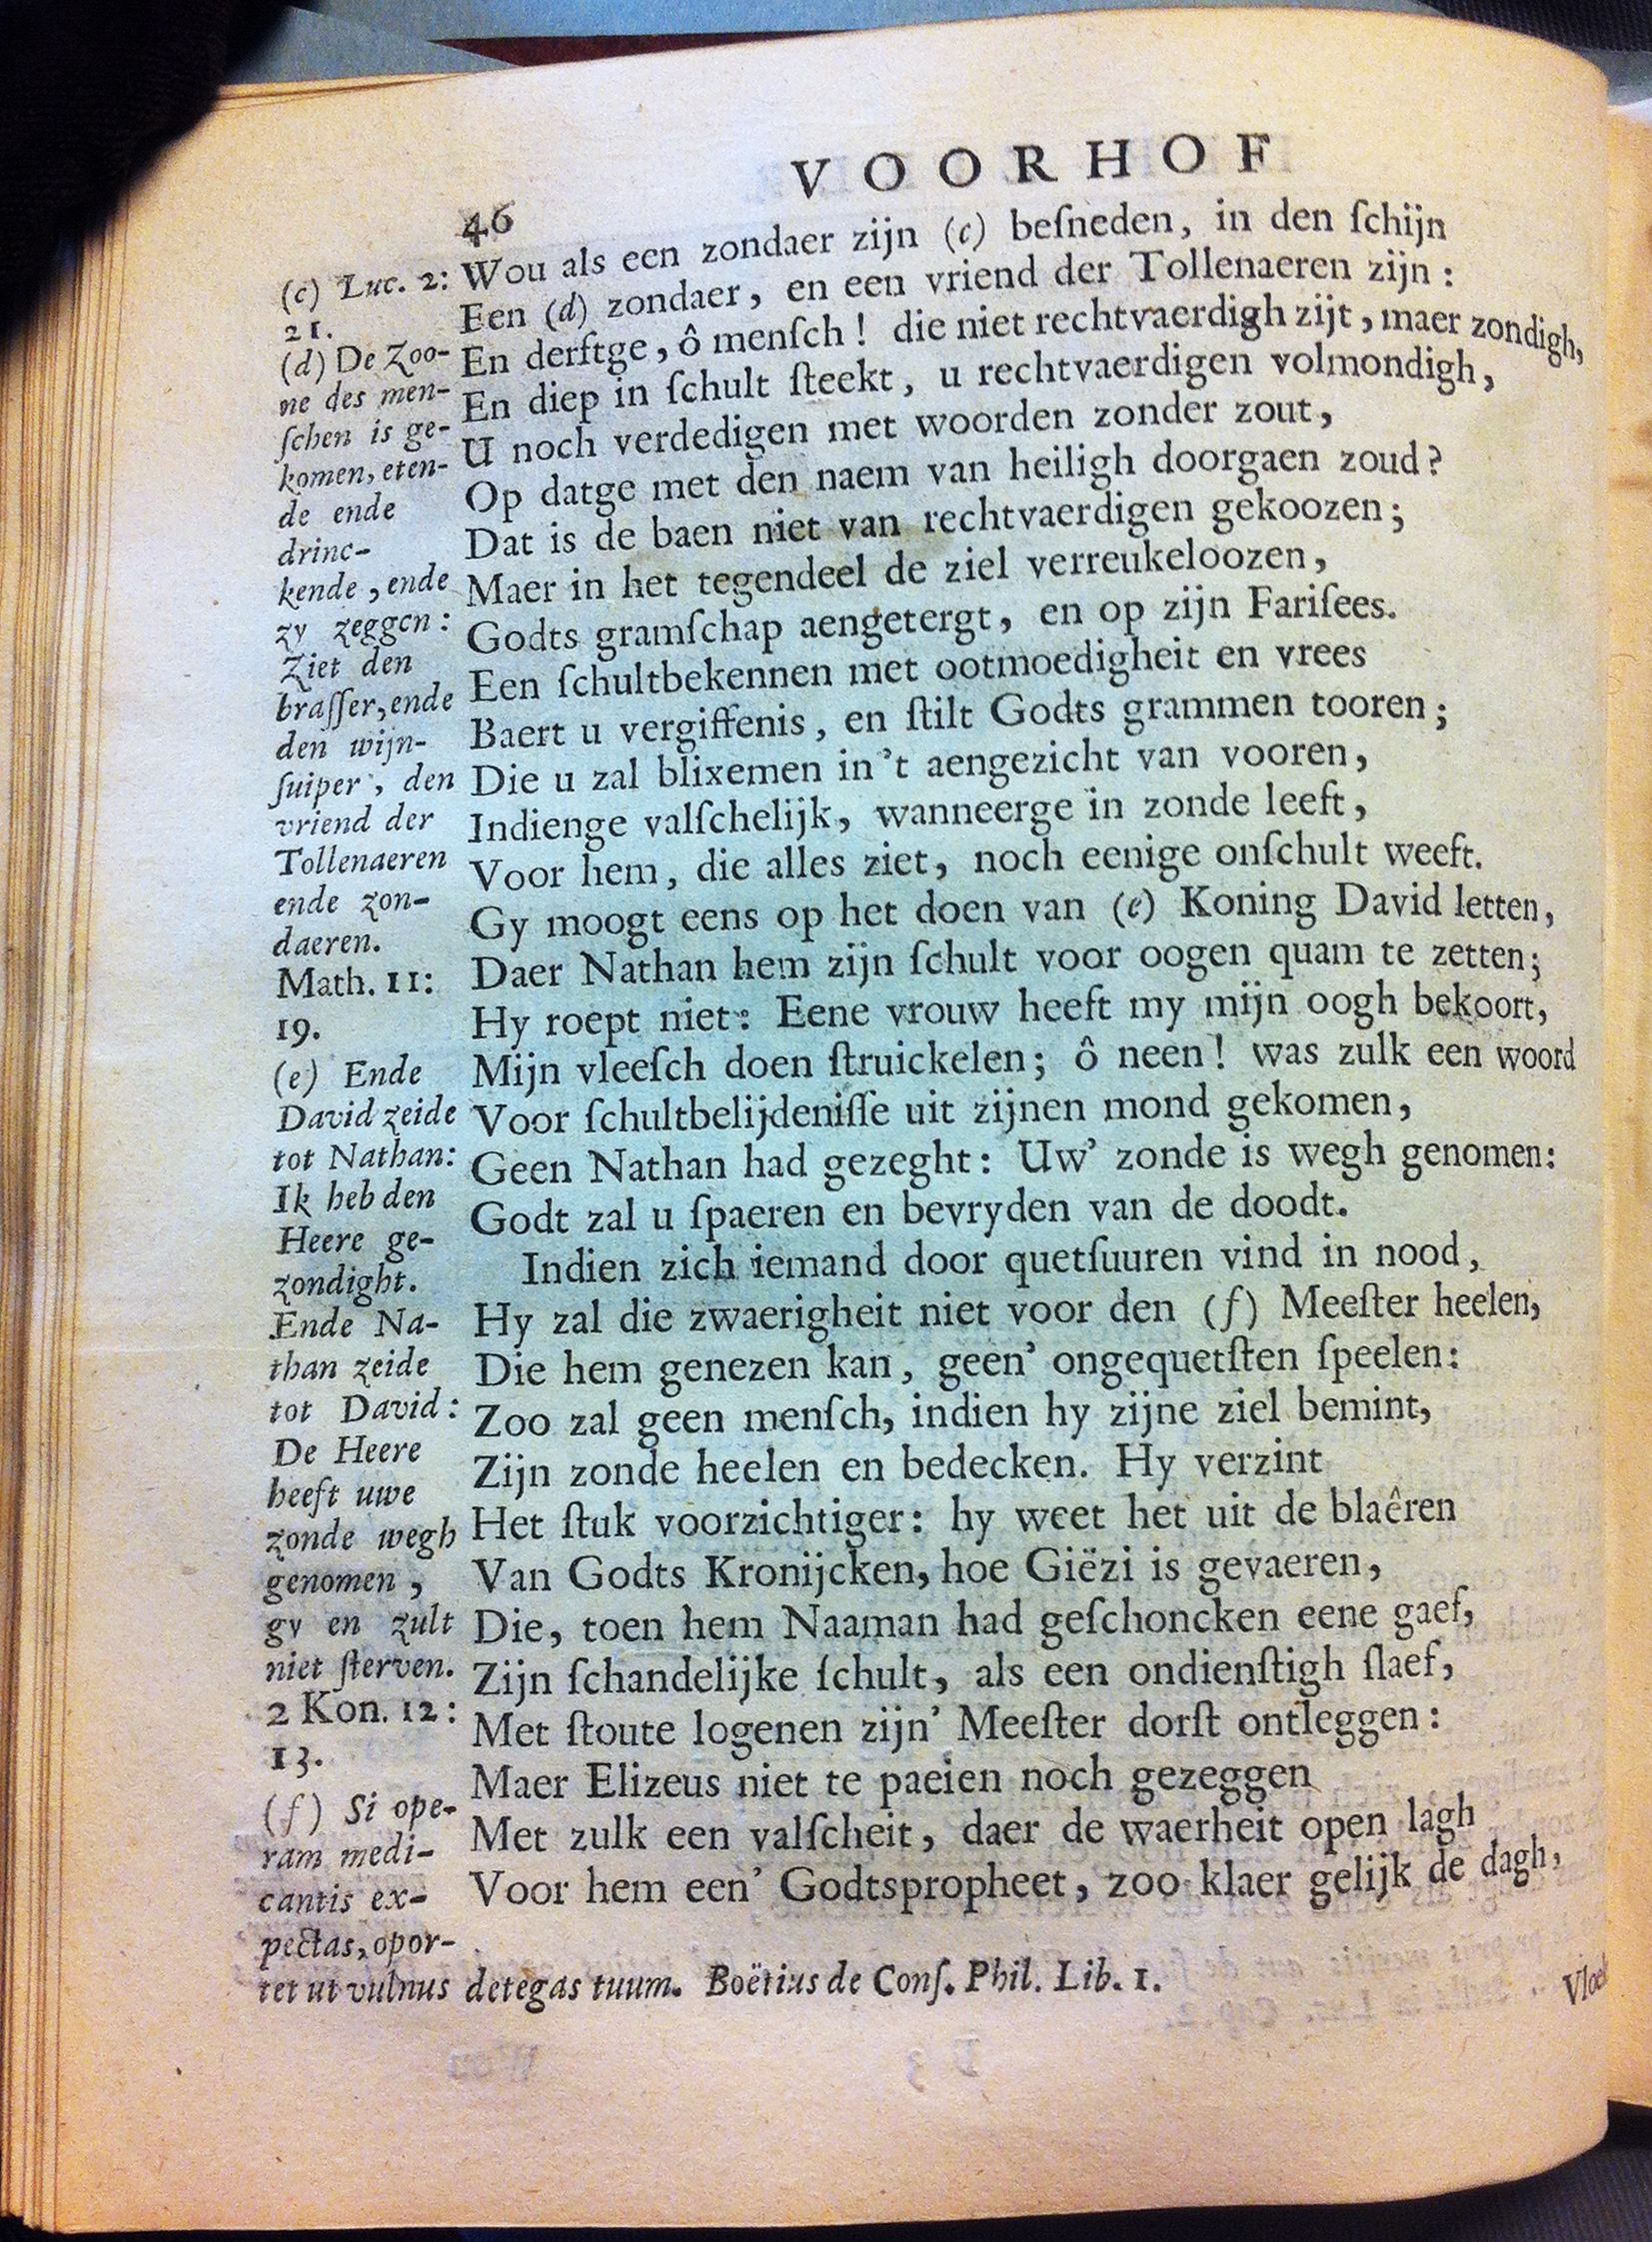 VOORHOF
46
Wou als een zondaer zijn (c) beſneden, in den ſchijn
Een (d) zondaer, en een vriend der Tollenaeren zijn:
En derftge, ô menſch! die niet rechtvaerdigh zijt, maer zondigh,
En diep in ſchult ſteekt, u rechtvaerdigen volmondigh,
U noch verdedigen met woorden zonder zout,
Op datge met den naem van heiligh doorgaen zoud?
Dat is de baen niet van rechtvaerdigen gekoozen;
Maer in het tegendeel de ziel verreukeloozen,
Godts gramſchap aengetergt, en op zijn Fariſees.
Een ſchultbekennen met ootmoedigheit en vrees
Baert u vergiffenis, en ſtilt Godts grammen tooren;
Die u zal blixemen in 't aengezicht van vooren,
Indienge valſchelijk, wanneerge in zonde leeft,
Voor hem, die alles ziet, noch eenige onſchult weeft.
Gy moogt eens op het doen van (e) Koning David letten,
Daer Nathan hem zijn ſchult voor oogen quam te zetten;
Hy roept niet: Eene vrouw heeft my mijn oogh bekoort,
Mijn vleeſch doen ſtruickelen; ô neen! was zulk een woord
Voor ſchultbelijdeniſſe uit zijnen mond gekomen,
Geen Nathan had gezeght: Uw' zonde is wegh genomen:
Godt zal u ſpaeren en bevryden van de doodt.
Indien zich iemand door quetſuuren vind in nood,
Hy zal die zwaerigheit niet voor den (f) Meeſter heelen,
Die hem genezen kan, geen' ongequetſten ſpeelen:
Zoo zal geen menſch, indien hy zijne ziel bemint,
Zijn zonde heelen en bedecken. Hy verzint
Het ſtuk voorzichtiger: hy weet het uit de blaêren
Van Godts Kronijcken, hoe Giëzi is gevaeren,
Die, toen hem Naaman had geſchoncken eene gaef,
Zijn ſchandelijke ſchult, als een ondienſtigh ſlaef,
Met ſtoute logenen zijn' Meeſter dorſt ontleggen:
Maer Elizeus niet te paeien noch gezeggen
Met zulk een valſcheit, daer de waerheit open lagh
Voor hem een' Godtspropheet, zoo klaer gelijk de dagh,
(c) Luc. 2:
21.
(d) De Zoo-
ne des men-
ſchen is ge-
komen, eten-
de ende
drinc-
kende, ende
zy zeggen:
Ziet den
braſſer, ende
den wijn-
ſuiper, den
vriend der
Tollenaeren
ende zon-
daeren.
Math. 11:
19.
(e) Ende
David zeide
tot Nathan:
Ik heb den
Heere ge-
zondight.
Ende Na-
than zeide
tot David:
De Heere
heeft uwe
zonde wegh
genomen,
gy en zult
niet ſterven.
2 Kon. 12:
13.
(f) Si ope-
ram medi-
cantis ex-
pectas, opor-
tet ut vulnus detegas tuum. Boëtius de Conſ. Phil. Lib. 1.